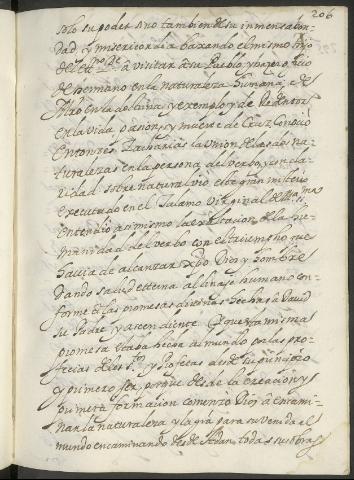 206
solo su poder sino tambien de su inmensa bon-
dad, y misericordia baxando el mismo hijo
del eterno P.e â visitar â su Pueblo, y hazer oficio
de hermano en la naturaleza humana, e de
Mtro en la doctina y exemplo, y de Redentor
en la vida, passion, y muerte de Cruz, Conoció
entonzes Zacharias la Union de las dos na-
turalezas en la persona del verbo, y con cla-
ridad sobrenatural vio este gran misterio
executado en el talamo Virginal de Maria SS.ma
entendio asi mismo la exaltacion de la hu-
manidad del verbo con el triumpho que
havia de alcanzar Xpto Dios y hombre
dando salud eterna al linage humano con-
forme â las promesas divinas hechas a David
su Padre y ascendiente. Y que esta misma
promesa estaba hecha al mundo por las pro-
fecias de los S.tos y Profetas desde su principio
y primero ser, porque desde la creacion y
primera formacion comenzo Dios â encami-
nar la naturaleza y la gra para su venida al
mundo encaminando desde Adan todas sus obras